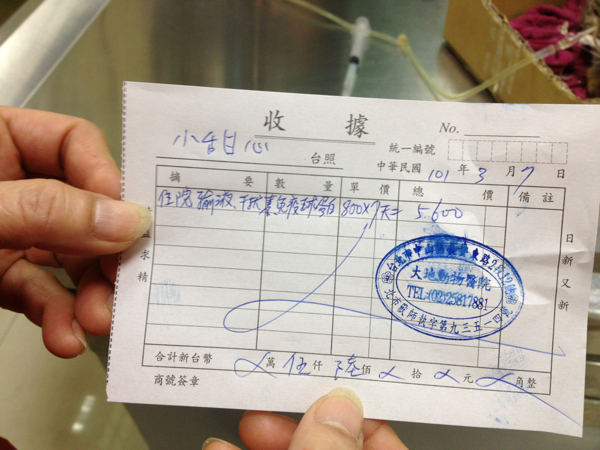 收 據 No.
統一編號
小甜心 台照
中華民國 101 年 3 月 7 日
摘 要 數 量 單 價 總 價 備 註
住院 輸液 干扰素免疫球蛋白 800×7天= 5.600
大地動物醫院
TEL:(02)25817881
精 益 求 精
日新又新
合計新台幣 萬 伍 仟 陸 佰 拾 元 角整
商號簽章